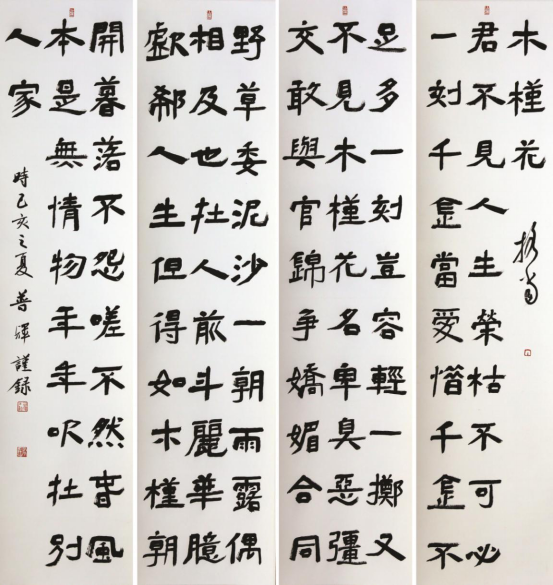 木槿花
君不見人生榮枯不可必
一刻千金當愛惜千金不
足多一刻豈容輕一擲又
不見木槿花名卑臭惡彊
交敢與官錦爭嬌媚合同
野草委泥沙一朝雨露偶
相及也在人前斗麗華臆
歔郗人生但得如木槿朝
開暮落不怨嗟不然春風
本是無情物年年吹在別
人家
時己亥之夏普輝謹錄